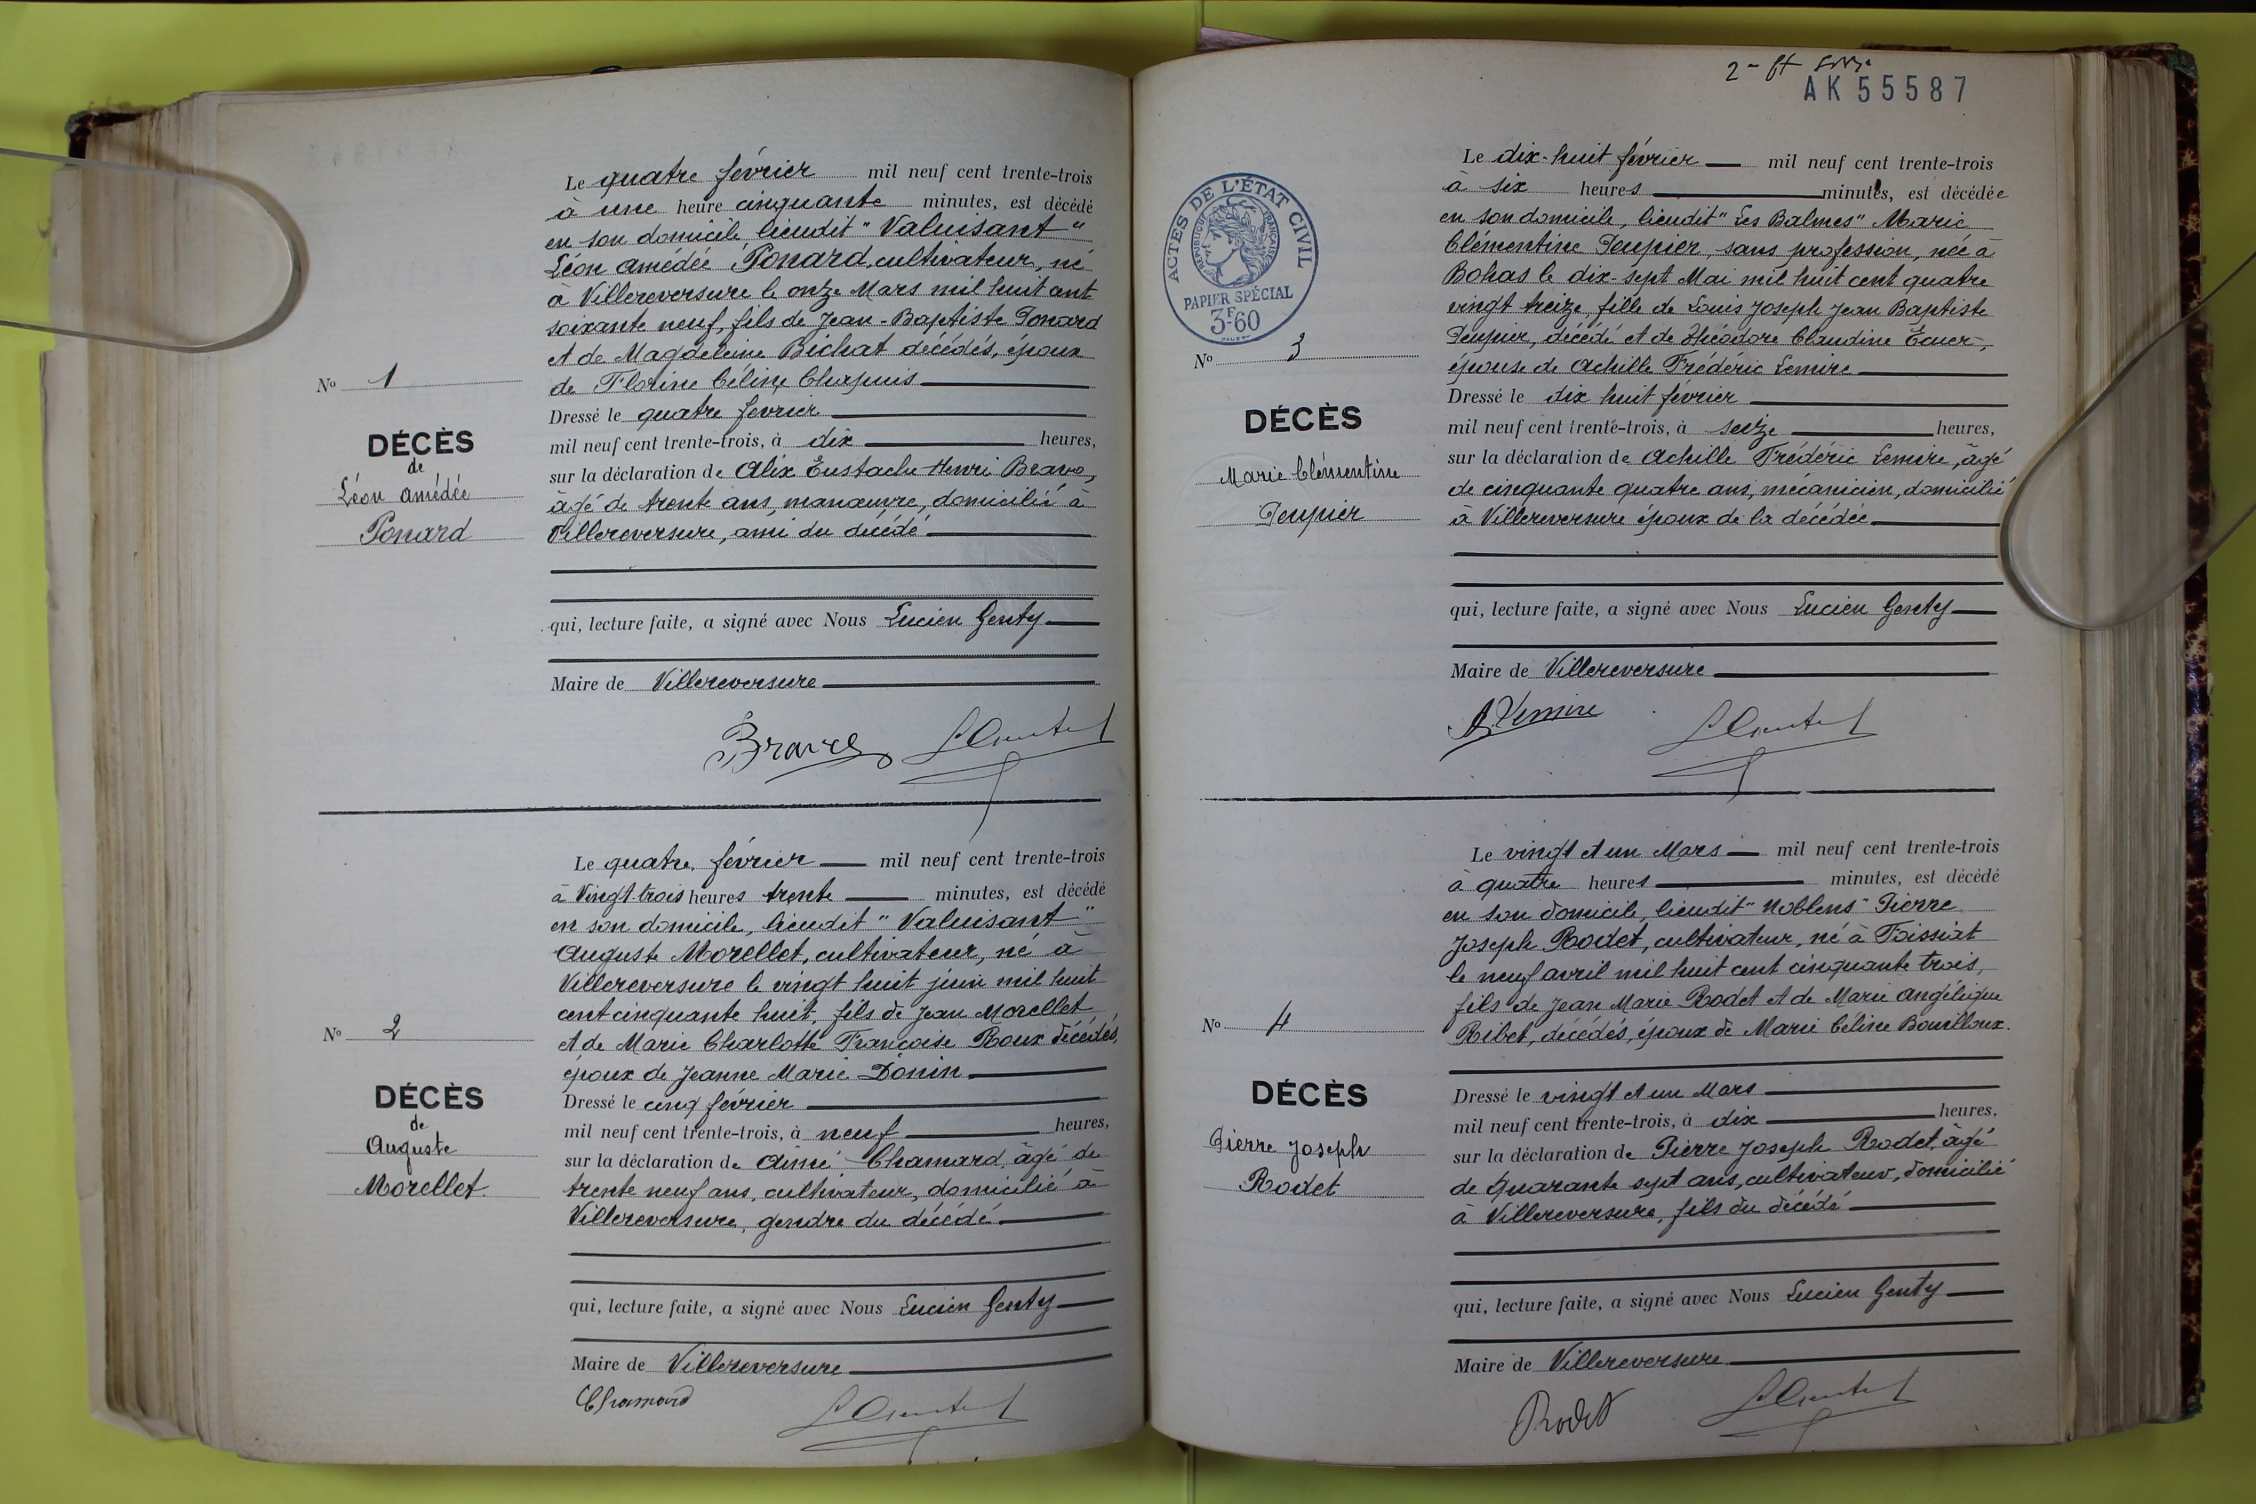 Le quatre février mil neuf cent trente-trois
à une heure cinquante minutes, est décédé
en son domicile lieudit "Valuisant"
Léon Amédée Ponard, cultivateur, né
à Villereversure le onze Mars mil huit cent
soixante neuf, fils de Jean-Baptiste Ponard
et de Magdeleine Bichat décédés, époux
de Florine Céline Chapuis
Dressé le quatre février
mil neuf cent trente-trois, à dix heures,
sur la déclaration de Alix Eustache Henri
âgé de trente ans, manœuvre, domicilié à
Villereversure, ami du décédé
qui, lecture faite, a signé avec Nous Lucien Genty
Maire de Villereversure
No 1
DÉCÈS
de
Léon Amédée
Ponard
Le quatre février mil neuf cent trente-trois
à Vingt-trois heures trente minutes, est décédé
en son domicile, lieudit "Valuisant"
Auguste Morellet, cultivateur, né à
Villereversure le vingt huit juin mil huit
cent cinquante huit, fils de Jean Morellet
et de Marie Charlotte Françoise Roux décédés,
époux de Jeanne Marie Donin
Dressé le cinq février
mil neuf cent trente-trois, à neuf heures,
sur la déclaration de Aimé Chamard, âgé de
trente neuf ans, cultivateur, domicilié à
Villereversure, gendre du décédé
qui, lecture faite, a signé avec Nous Lucien Genty
Maire de Villereversure
Chamard
No 2
DÉCÈS
de
Auguste
Morellet
AK 55587
ACTES DE L'ÉTAT CIVIL
RÉPUBLIQUE FRANÇAISE
PAPIER SPÉCIAL
3F60
Le dix-huit février mil neuf cent trente-trois
à six heures minutes, est décédée
en son domicile, lieudit "Les Balmes" Marie
Clémentine Peupier, sans profession, née à
Bohas le dix-sept Mai mil huit cent quatre
vingt treize, fille de Louis Joseph Jean Baptiste
Peupier, décédé et de Théodore Claudine
épouse de Achille Frédéric Lemire
Dressé le dix huit février
mil neuf cent trente-trois, à seize heures,
sur la déclaration de Achille Frédéric Lemire, âgé
de cinquante quatre ans, mécanicien, domicilié
à Villereversure époux de la décédée
qui, lecture faite, a signé avec Nous Lucien Genty
Maire de Villereversure
A Lemire
No 3
DÉCÈS
Marie Clémentine
Peupier
Le vingt et un Mars mil neuf cent trente-trois
à quatre heures minutes, est décédé
en son domicile, lieudit "Noblens" Pierre
Joseph Rodet, cultivateur, né à Foissiat
le neuf avril mil huit cent cinquante trois,
fils de Jean Marie Rodet et de Marie Angélique
Ribet, décédés, époux de Marie Céline Bouilloux.
Dressé le vingt et un Mars
mil neuf cent trente-trois, à dix heures,
sur la déclaration de Pierre Joseph Rodet, âgé
de quarante sept ans, cultivateur, domicilié
à Villereversure, fils du décédé
qui, lecture faite, a signé avec Nous Lucien Genty
Maire de Villereversure
Rodet
No 4
DÉCÈS
Pierre Joseph
Rodet